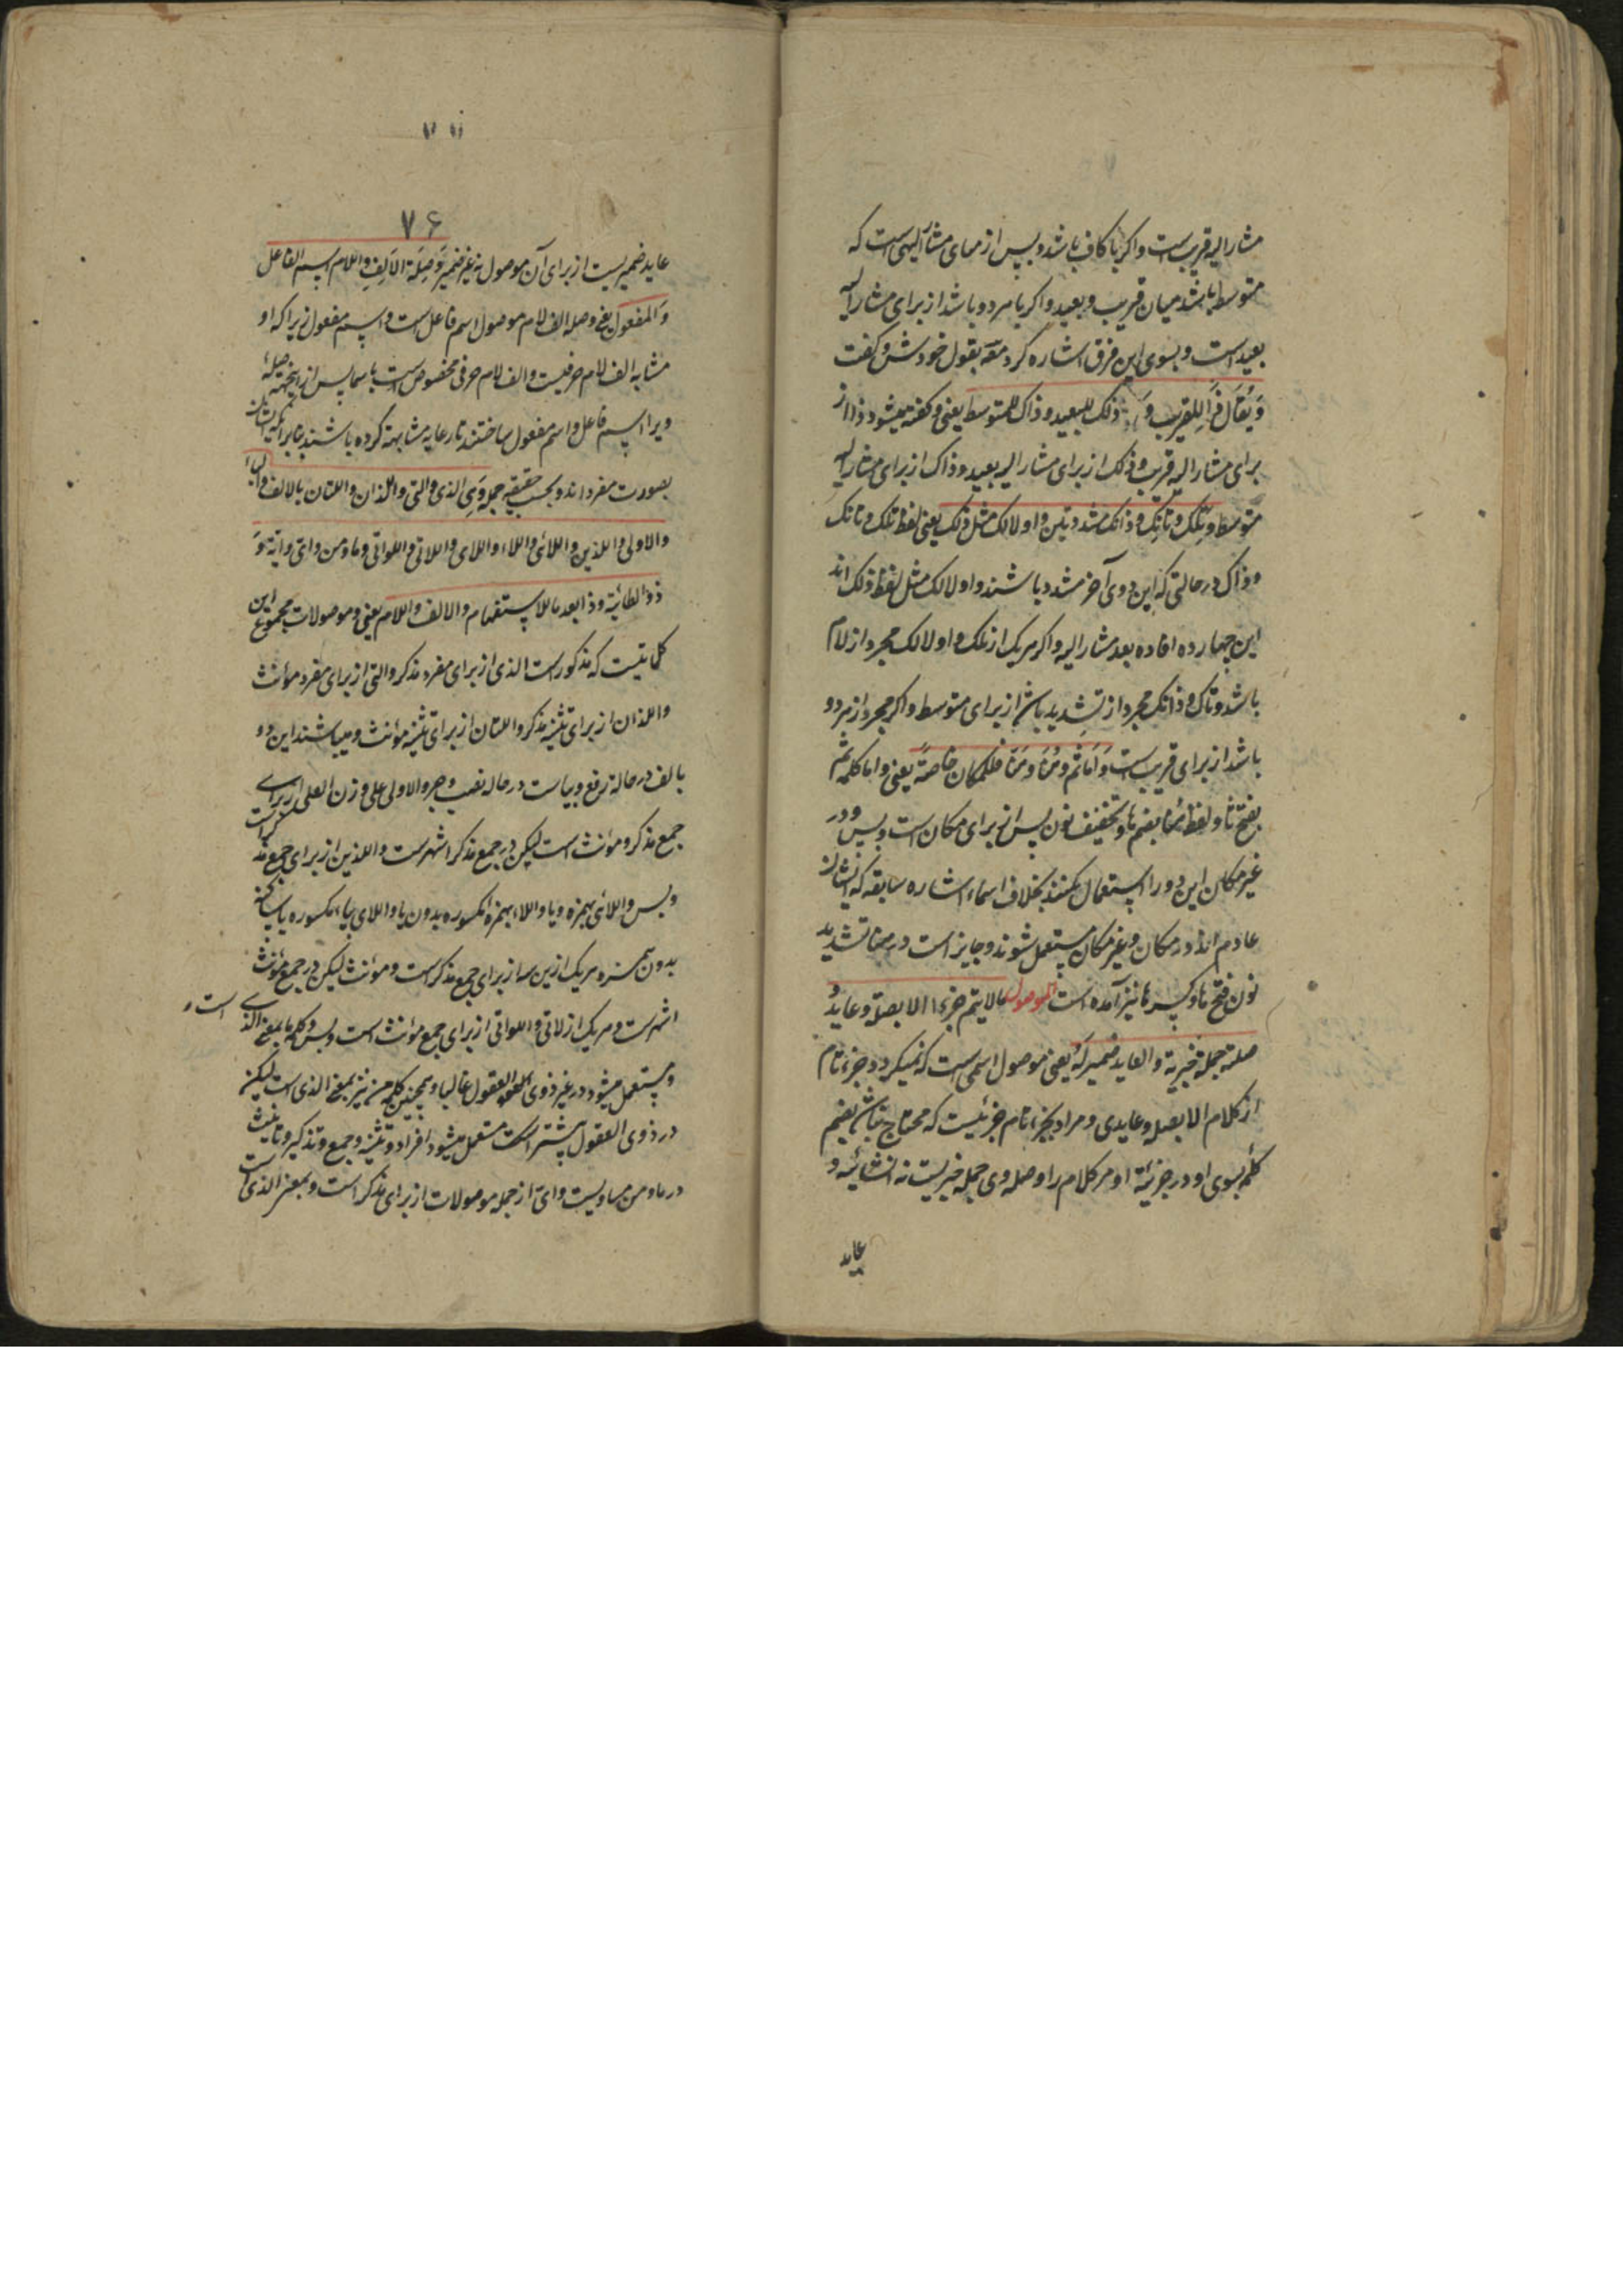 مشارالیه قریب است و اکر با کاف باشد و پس از برای مشارالیهی است که
متوسط باشد میان قریب و بعید و اکر با هر دو باشد از برای مشارالیه
بعید است و بسوی این فرق اشاره کرد مع بقول خودش و کفت
وَیُقَال ذَا لِلقریب وَ ذلک للبعید و ذاک للمتوسط یعنی و کفته میشود ذا از
برای مشارالیه قریب و ذلک از برای مشارالیه بعید و ذاک از برای مشارالیه
متوسط و تِلک و تانک و ذانک مشددتین و اولالک مثل ذلک یعنی لفظ تلک و تانک
و ذانک در حالتی که این دوی آخر مشدد باشند و اولالک مثل لفظ ذلک اند
این چهار در افاده بعد مشارالیه و اکر هر یک از تلک و اولالک مجرد از لام
باشد و تانک و ذانک مجرد از تشدید باشد از برای متوسط و اکر مجرد از هر دو
باشد از برای قریب است وَ اَمّا ثَمّ و هُنا و هَنّا فللمکان خاصةً یعنی و اما کلمه ثم
بفتح ثا و لفظ هُنا بضم ها و تخفیف نون پس از برای مکان است و بس و در
غیر مکان این دو را استعمال نکنند بخلاف اسماء اشاره سابقه که ایشان
عام اند در مکان و غیر مکان مستعمل شوند و جایز است در هنا تشدید
نون و فتح ها و کسر ها نیز آمده است الموصول ما لا یتم جزءا الا بصلة و عاید وُ
صلته جملة خبریة و العاید ضمیر لَهُ یعنی موصول اسمی است که نمیکردد جزء تام
از کلام الا بصله و عایدی و مراد بجزء تام جزئیست که محتاج نباشد بضم
کلمه بسوی او در جزئیة او مر کلام را و صله وی جمله خبریست نه انشائیه و
عاید
۷۶
عاید ضمیریست از برای آن موصول نه غیر ضمیر وَ صِلَة الاَلِفِ و اللام اسم الفاعل
وَ المفعول یعنی و صله الف لام موصول اسم فاعل است و اسم مفعول زیرا که او
مشابه الف لام حرفیست و الف لام حرفی مخصوص است باسما پس از اینجهة صله
ویرا اسم فاعل و اسم مفعول ساختند تا رعایه مشابهة کرده باشند بنابر آنکه ایشان
بصورت مفرداند و بحسب حقیقه جمله وَ هِیَ الذی و التی و اللذان و اللتان بالالف و الیاء
و الاولی و الذین و اللائی و اللاء و اللای و اللاتی و اللواتی و ما و من و ای و ایة و
ذو الطائیة و ذا بعد ما للاستفهام و الالف و اللام یعنی و موصولات مجموع این
کلماتیست که مذکور است الذی از برای مفرد مذکر و التی از برای مفرد مؤنث
و اللذان از برای تثنیه مذکر و اللتان از برای تثنیه مؤنث و میباشند این دو
بالف در حاله رفع و بیاست در حاله نصب و جر و الاولی علی وزن العلی از برای
جمع مذکر و مؤنث است لیکن در جمع مذکر اشهر است و الذین از برای جمع مذکر است
و بس و اللائی بهمزه و یا و اللاء بهمزه مکسوره بدون یا و اللای بیاء مکسوره یا ساکنه
بدون همزه هر یک ازین سه از برای جمع مذکر است و مؤنث لیکن در جمع مؤنث
اشهر است و هر یک از لاتی و اللواتی از برای جمع مؤنث است و بس و کلمه ما بمعنی الذی است
و مستعمل میشود در غیر ذوی العقول غالبا و همچنین کلمه من نیز بمعنی الذی است لیکن
در ذوی العقول بیشتر است مستعمل میشود افراد و تثنیه و جمع و تذکیر و تانیث
در ما و من مساویست و ای از جمله موصولات از برای مذکر است و بمعنی الذی است